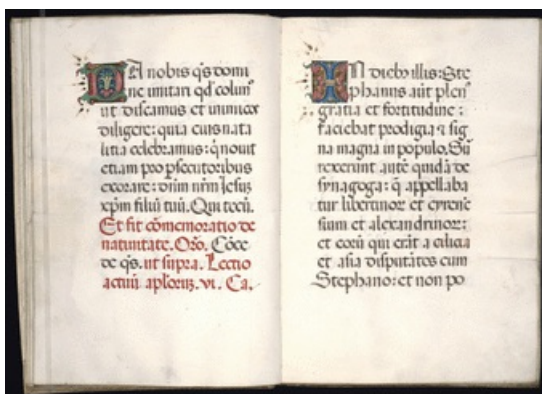 DA nobis q̃s domi
ne imitari qd̃ colim᷒
ut discamus et inimicos
diligere: quia eius nata
litia celebramus: q̃ novit
etiam pro ꝑsecutoribus
exorare: dñm nr̃m Iesuz
xp̃m filiũ tuũ. Qui tecũ.
Et fit cõmemoratio de
nativitate. Orõ. Cõce
de q̃s. ut supra. Lectio
actuũ apl̃oruz. vi. Ca.
IN diebus illis: Ste
phanus aũt plen᷒
gratia et fortitudine:
faciebat prodigia ⁊ sig
na magna in populo. Sur
rexerunt autẽ quidã de
synagoga: q̃ appellaba
tur libertinoꝝ et cyrenẽ
sium et alexandrinoꝝ:
et eoꝝ qui erãt a cilicia
et asia disputãtes cum
Stephano: et non po